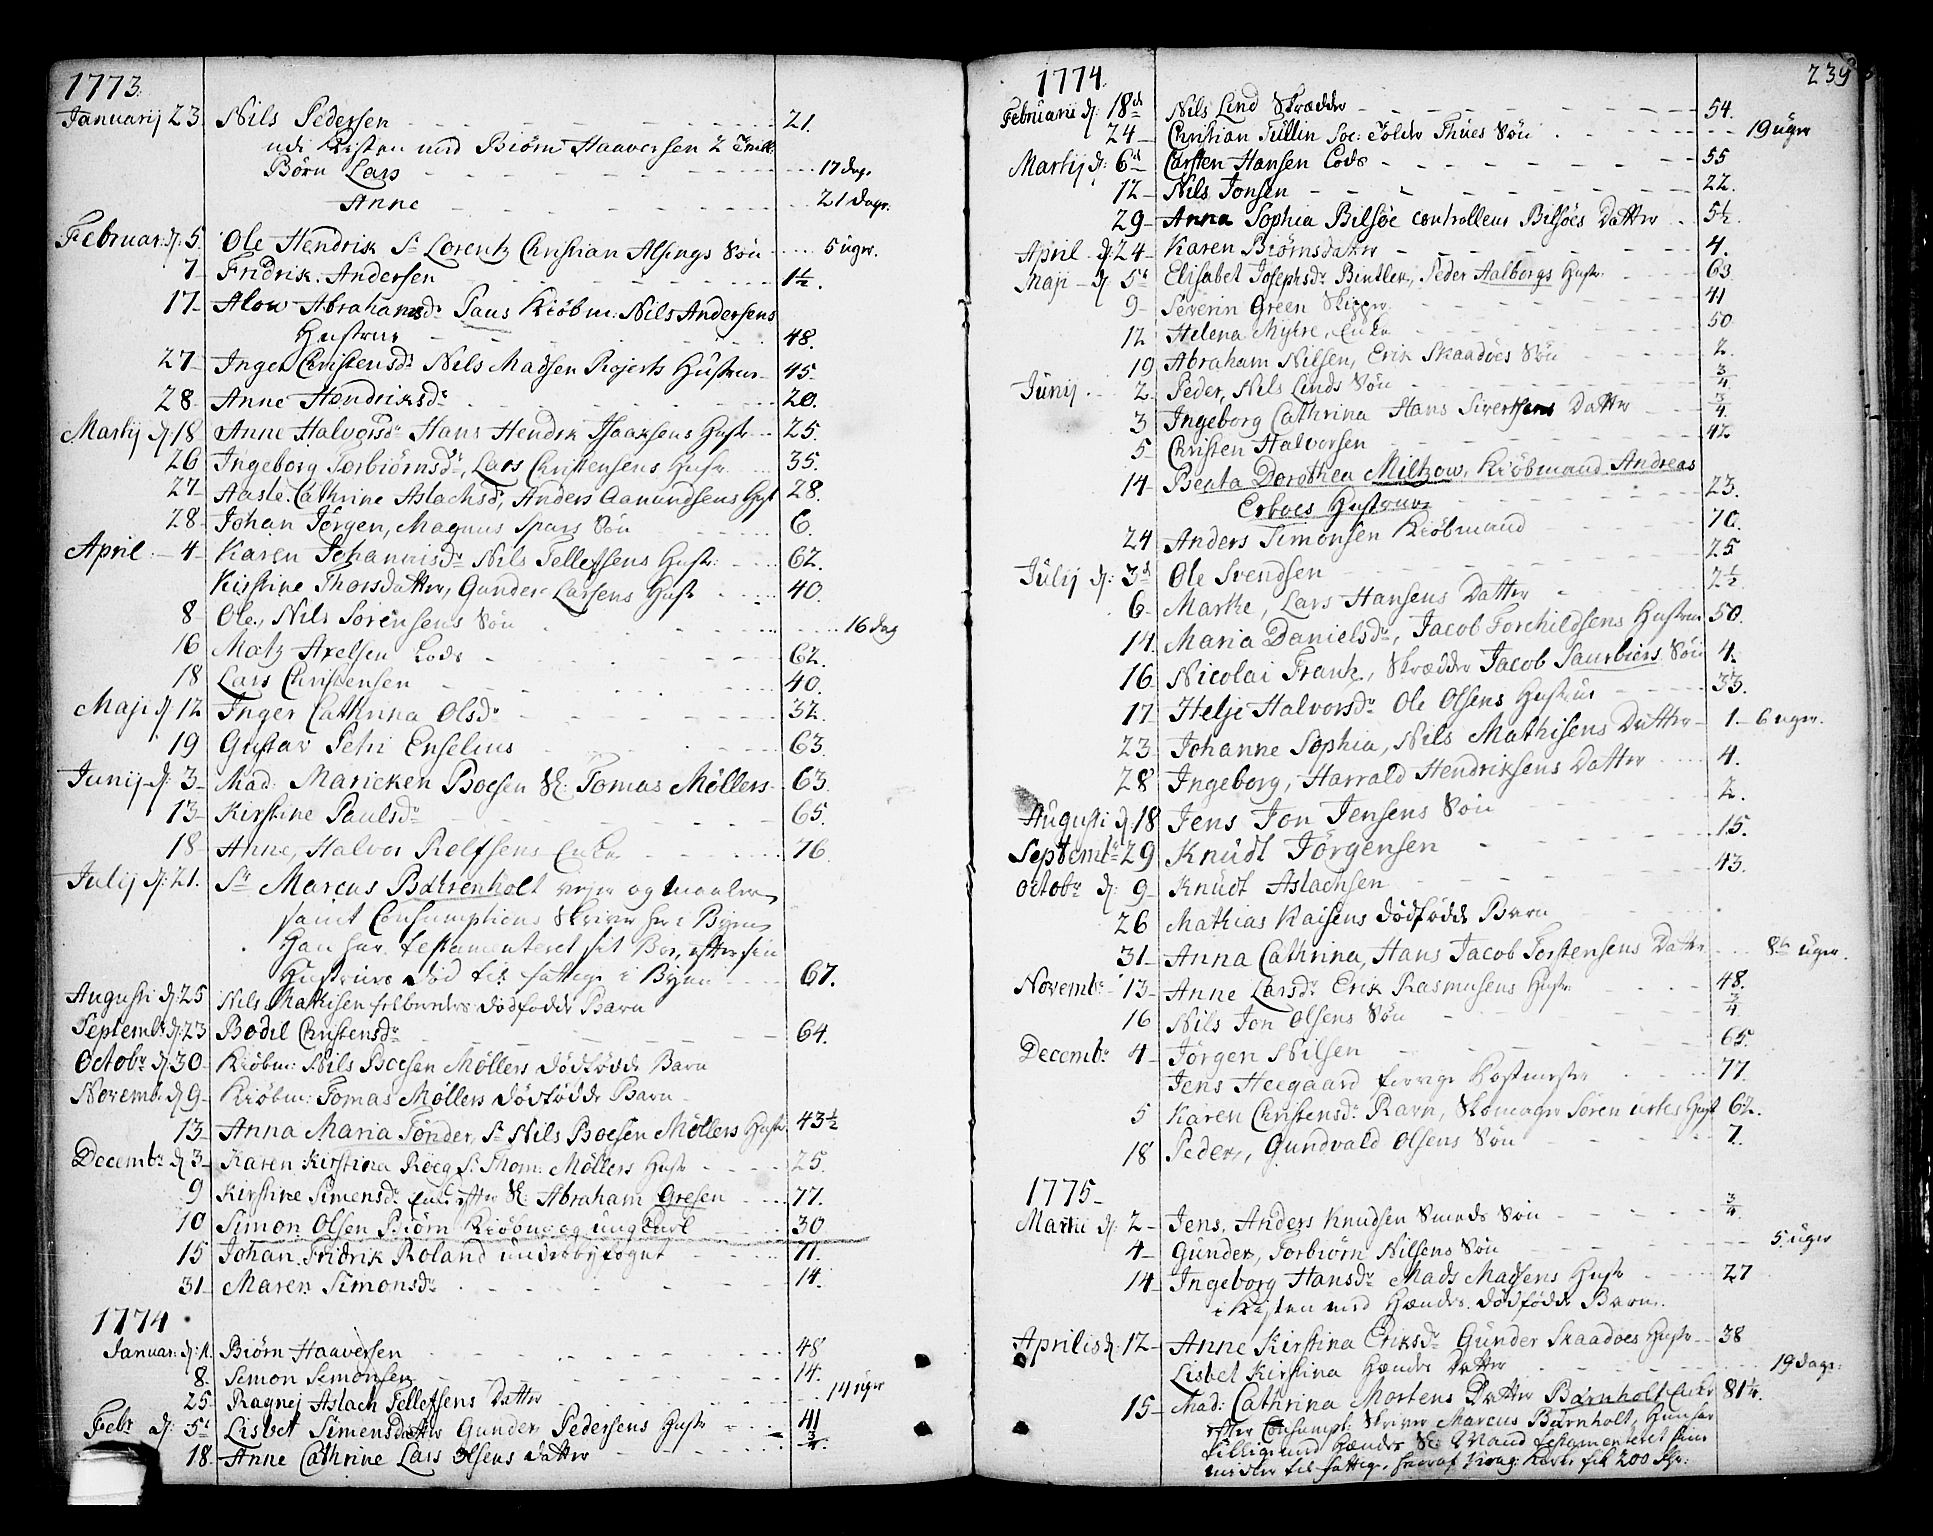 1773.
Januarij 23. Nils Pedersen 21.
udi Kisten med Biørn Haaversen 2 Tvill:
Børn Lars 17 dage
Anne 21 dage.
Februar: d: 5. Ole Hendrik Sr Lorentz Christian Alsings Søn 5 uger.
7 Fridrik Andersen 1½.
17 Alow Abrahamsdr Paus Kiøbm: Nils Andersens
Hustrue 48.
27 Inger Christensdr Nils Madsen Hustrue 45
28 Anne Hendriksdr 20.
Martij d: 18 Anne Halvorsdr Hans Hendrik Isaaksens Hustr 25.
26 Ingeborg Torbiørnsdr, Lars Christensens Hustr 35.
27 Aaste Cathrine Aslachsdr, Anders Aamundsens Hustr 28.
28 Johan Jörgen, Magnus Spars Søn 6.
April 4 Karen Johannisdr Nils Tellefsens Hustr: 62.
Kirstine Thorsdatter, Gunder Larsens Hustr 40.
8 Ole, Nils Sörensens Søn 16 dag
16 Matz Axelsen Lods 62.
18 Lars Christensen 40.
Maji d 12 Inger Cathrina Olsdr 32.
19 Gustav Petri Enselius 63.
Junij d: 3 Mad: Maricken Boesen Sl: Tomas Møllers 63.
13 Kirstine Paulsdr 65.
18 Anne, Halvor Rolfsens Enke 76.
Julij d: 21. Sr Marcus Bærenholt vejer og maaler
samt Consumptions Skriver her i Byen
Han har testamenteret sit Boe, efter sin
Hustrues Død til fattige i Byen 67.
Augusti d: 25 Nils Mathisen dødfødde Barn
Septembr d: 23 Bodil Christensdr 64.
Octobr d 30 Kiøbm: Nils Boesen Møllers dødfødde Barn
Novembr d 9 Kiøbm: Tomas Møllers dødfødde Barn
13 Anna Maria Tønder, Sr Nils Boesen Møllers Hustr 43½
Decembr d 3 Karen Kirstina Röeg Sr Thom: Møllers Hustr 25.
9 Kirstine Simensdr Enke efter Sl: Abraham Gresen 77.
10 Simon Olsen Biørn Kiøbm og ung Carl 30
15 Johan Fridrik Roland underbyfoget 71.
31 Maren Simonsdr 14.
1774
Januar: d: 1. Biørn Haaversen 48
8. Simon Simonsen 14.
25 Ragnej Aslach Tellefsens Datter 14 uger
Febr d: 5t Lisbet Simensdatter Gunder Pedersens Hustr 41
18. Anne Cathrine Lars Olsens datter ¾
1774. 239
Februarii d: 18d Nils Lind Skrædder 54.
24 Christian Tullin Soc: Tolder Thues Søn 19 uger
Martij d: 6d Carsten Hansen Lods 55
12 Nils Jonsen 22.
29 Anna Sophia Bilsöe controlleur Bilsöes Datter 5½
April d: 24 Karen Biørnsdatter 4.
Maji d: 5t Elisabet Josephsdr Bentlen, Peder Aalborgs Hustr 63
9 Severin Green Skipper 41
12 Helena Mytre, Enke 50
19 Abraham Nilsen, Erik Skaadöes Søn 2.
Junij 2. Peder, Nils Linds Søn ¾
3 Ingeborg Cathrina Hans Sivertsens Datter ¾.
5 Christen Halvorsen 42
14 Beata Dorothea Miltzow, Kiøbmand Andreas
Erboes Hustrue 23.
24 Anders Simonsen Kiøbmand 70.
Julij d: 3d Ole Svendsen 25
6 Marthe, Lars Hansens Datter 2½
14 Maria Danielsdr, Jacob Torchildsens Hustrue 50.
16 Nicolai Frantz, Skrædder Jacob Saurbiers Søn 4.
17 Helje Halvorsdr Ole Olsens Hustrue 33.
23 Johanne Sophia, Nils Mathisens Datter 1. 6 uger.
28 Ingeborg, Harrald Hendriksens Datter 4.
Augusti d: 18 Jens Jon Jensens Søn 2.
Septembr 29 Knudt Jörgensen 15.
Octobr d: 9 Knudt Aslachsen 43.
26 Mathias Kaisens dødfødde Barn
31 Anna Cathrina, Hans Jacob Torstensens Datter 8te uger.
Novembr 13 Anne Larsdr Erik Rasmusens Hustr 48.
16 Nils Jon Olsens Søn ¾
Decembr 4 Jörgen Nilsen 65.
Jens Heegaard forrige Postmester 77.
5 Karen Christensdr Ravn, Skomager Sören Hustr 62.
18 Peder, Gundvald Olsens Søn 7.
1775
Martii d: 2 Jens, Anders Knudsen Smeds Søn ¾
4 Gunder, Torbiörn Nilsens Søn 5. uger
14 Ingeborg Hansdr Mads Madsens Hustr 27
i Kisten med hendes dødfødde Barn.
Aprilis d: 12 Anne Kirstina Eriksdr Gunder Skaadöes Hustr 38
Lisbet Kirstina hendes datter 19 dage:
15 Mad: Cathrina Mortens Datter Bærnholt Enke 81½.
efter Consumpt: Skriver Marcus Bærnholt, Hun har
tillige med hendes Sl: Mand testamenteret sine
midler til fattige, heraf Kirke fik 200 Rdr: